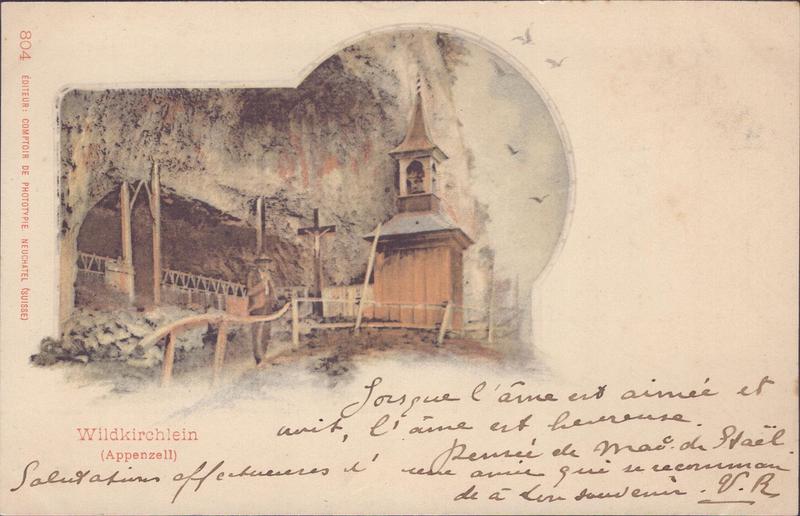 804 ÉDITEUR: COMPTOIR DE PHOTOTYPIE. NEUCHATEL (SUISSE)
Wildkirchlein
(Appenzell)
Lorsque l'âme est aimée et
croit, l'âme est heureuse.
Pensée de Mad. de Staël.
Salutations affectueuses d' une amie qui se recomman
de à bon souvenir. V. R